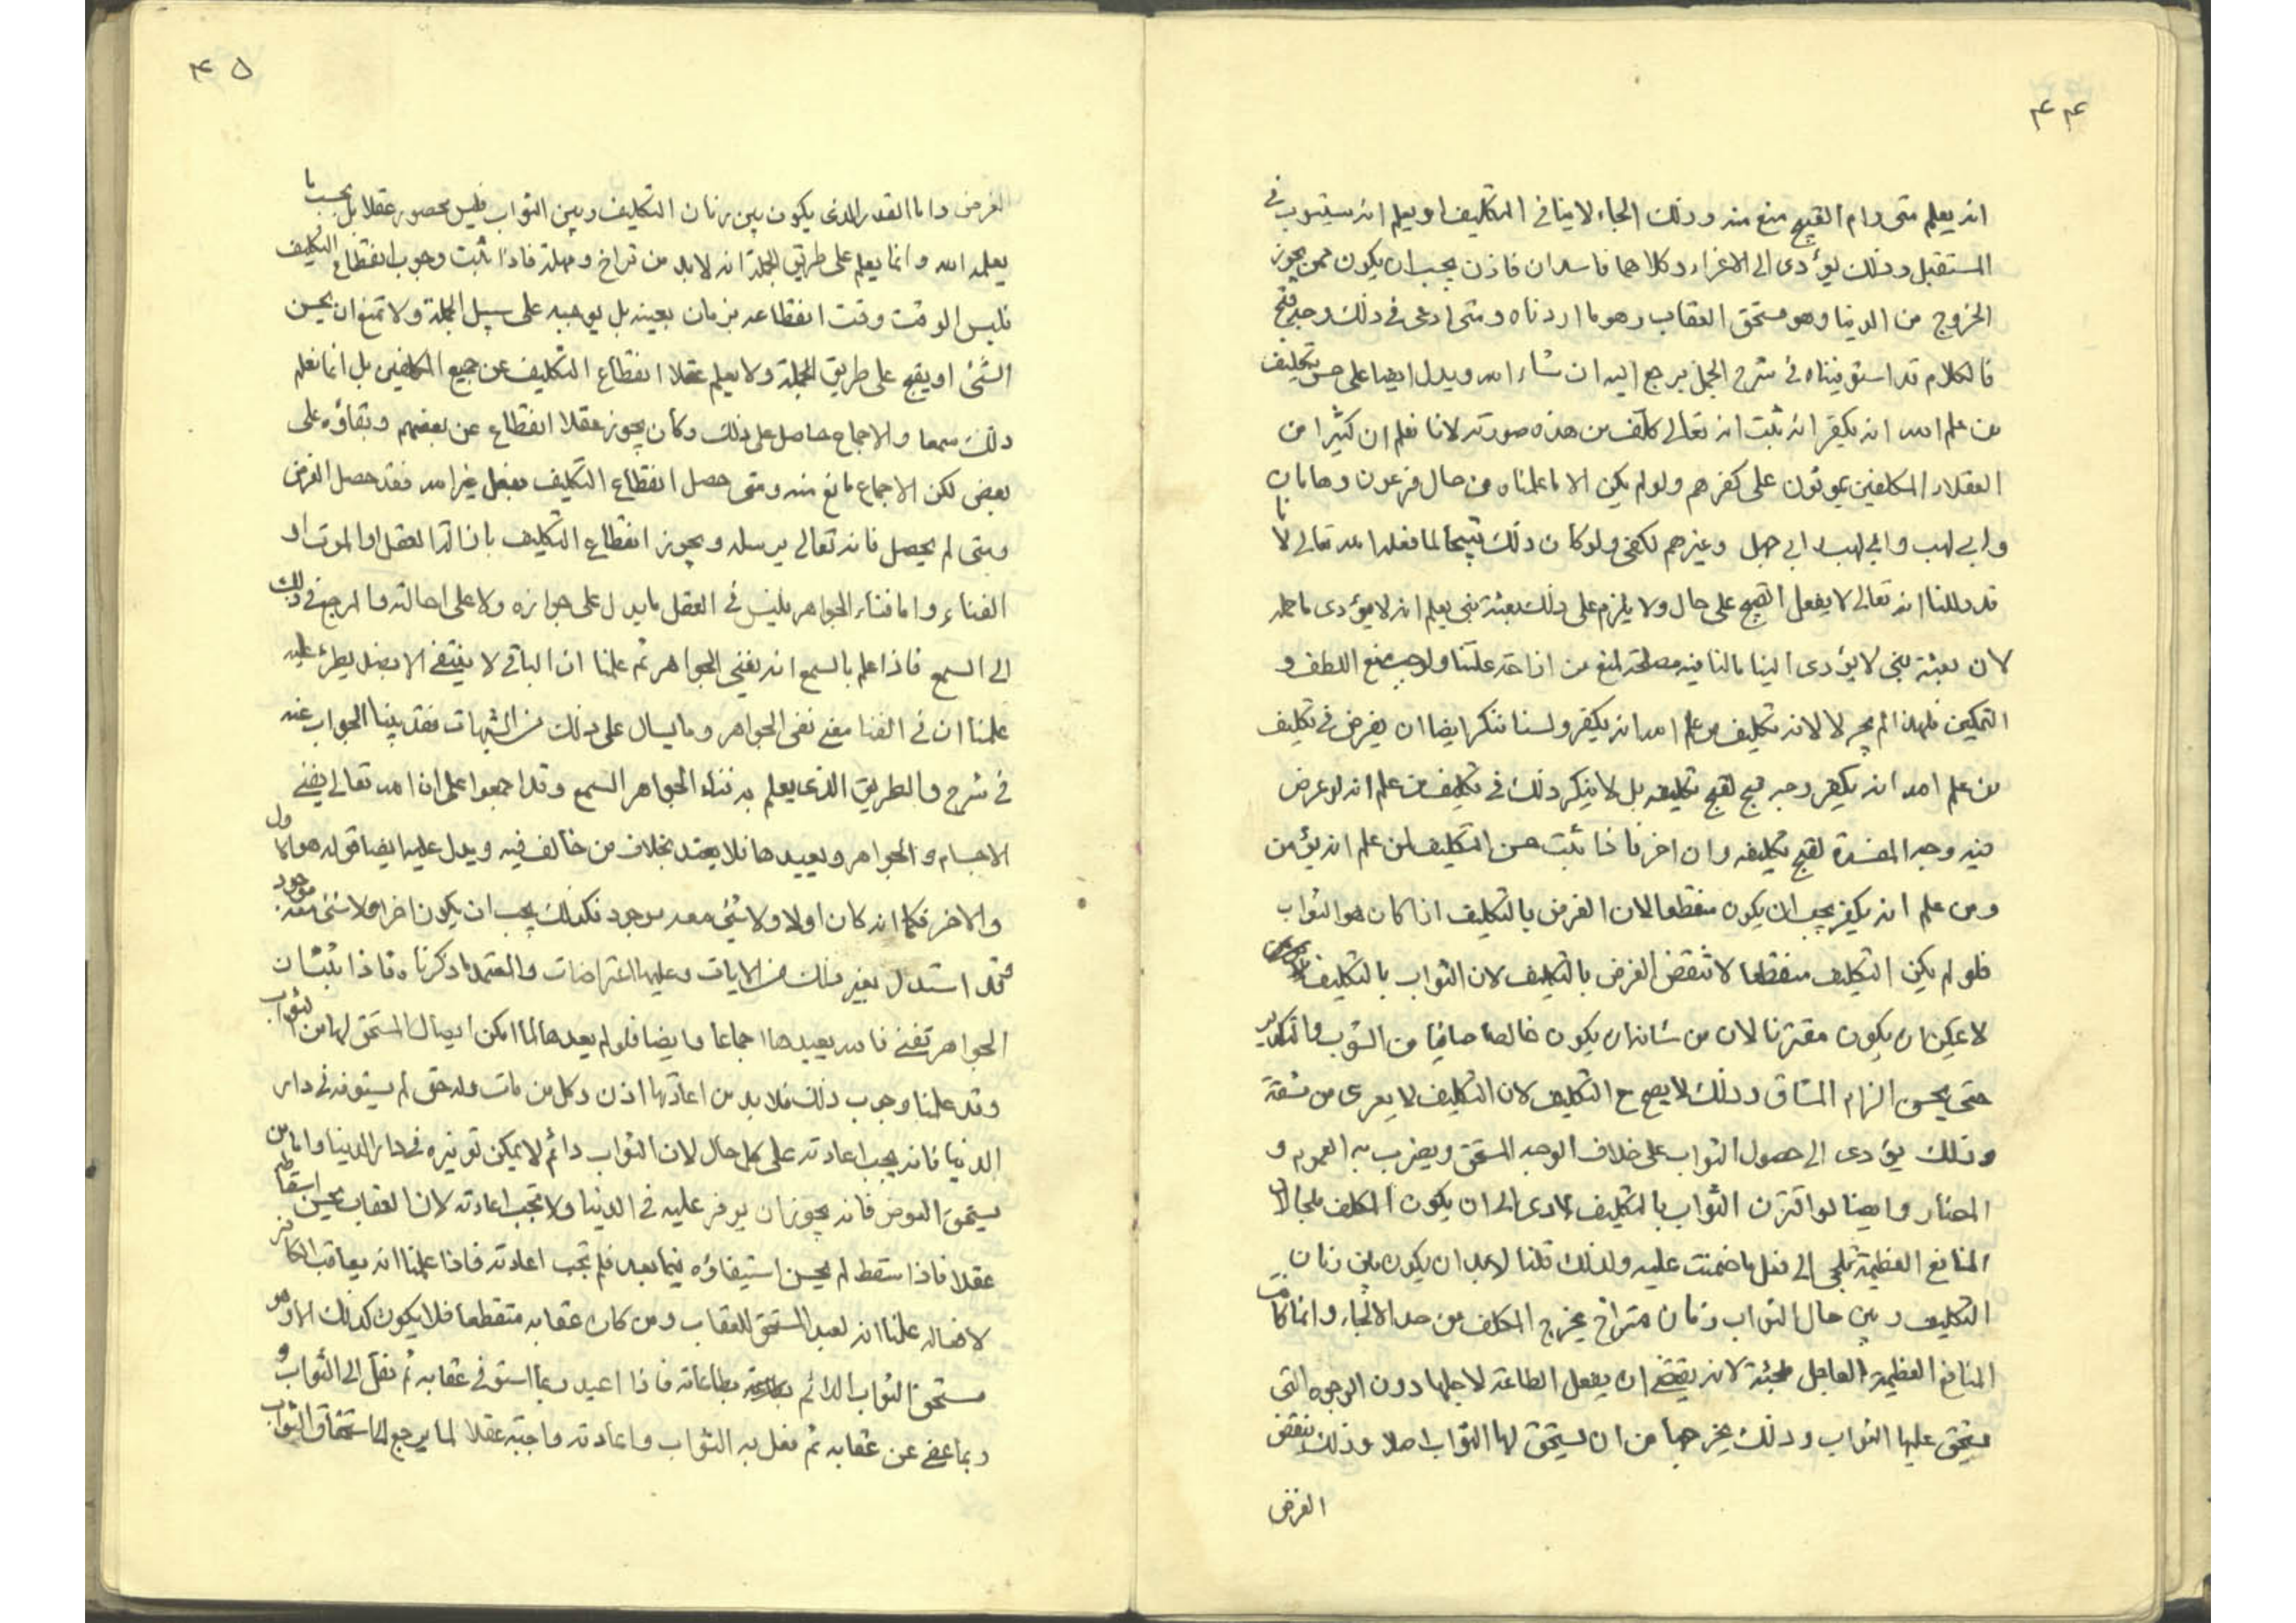 ۴۴
انه يعلم متى رام القبيح منع منه وذلك الجاء لاينافى التكليف او يعلم انه سيتوب فى
المستقبل وذلك يؤدى الى الاغراء وكلاهما فاسدان فاذن يجب ان يكون ممن يجوز
الخروج من الدنيا وهو مستحق العقاب وهو ما اردناه ومتى ادعى فى ذلك وجه قبح
فالكلام قد استوفيناه فى شرح الجمل يرجع اليه ان شاء الله ويدل ايضا على حسن تكليف
من علم الله انه يكفر انه ثبت انه تعالى كلف من هذه صورته لانا نعلم ان كثيرا من
العقلاء المكلفين يموتون على كفرهم ولو لم يكن الا ما علمناه من حال فرعون وهامان
وابى لهب وابى جهل وغيرهم لكفى ولو كان ذلك قبيحا لما فعله الله تعالى لانا
قد دللنا انه تعالى لا يفعل القبيح على حال ولا يلزم على ذلك بعثة نبى يعلم انه لا يؤدى ما حمله
لان بعثة نبى لا يؤدى الينا مالنا فيه مصلحة لمنع من ازاحة علتنا ولوجب منع اللطف و
التمكين فلهذا لم يجز لا لانه تكليف من علم الله انه يكفر ولسنا ننكر ايضا ان يعرض فى تكليف
من علم الله انه يكفر وجه قبح لقبح تكليفه بل لا ننكر ذلك فى تكليف من علم انه لو عرض
فيه وجه المفسدة لقبح تكليفه وان اخر فاذا ثبت حسن التكليف لمن علم انه يؤمن
ومن علم انه يكفر يجب ان يكون منقطعا لان الغرض بالتكليف اذا كان هو الثواب
فلو لم يكن التكليف منقطعا لانتقض الغرض بالتكليف لان الثواب بالتكليف
لا يمكن ان يكون مقترنا لان من شانه ان يكون خالصا صافيا من الشوب والتكدير
حتى يحسن الزام المشاق وذلك لا يصح ح التكليف لان التكليف لا يعرى من مشقة
وذلك يؤدى الى حصول الثواب على خلاف الوجه المستحق ويضرب به الغموم و
المضار وايضا لو اقترن الثواب بالتكليف لادى الى ان يكون المكلف ملجا لان
المنافع العظيمة تلجى الى فعل ما ضمنت عليه ولذلك قلنا لابد ان يكون بين زمان
التكليف وبين حال الثواب زمان متراخ يخرج المكلف من حد الالجاء وانما كانت
المنافع العظيمة العاجل ملجئة لانه يقتضى ان يفعل الطاعة لاجلها دون الوجوه التى
يستحق عليها الثواب وذلك يخرجها من ان يستحق لها الثواب اصلا وذلك ينقض
الغرض
۴۵
الغرض واما القدر الذى يكون بين زمان التكليف وبين الثواب فليس بمحصور عقلا بل بحسب ما
يعلمه الله وانما يعلم على طريق الجملة انه لابد من تراخ ومهلة فاذا ثبت وجوب انقطاع التكليف
فليس الوقت وقت انقطاعه بزمان بعينه بل يوجبه على سبيل الجملة ولا تمنع ان يحسن
الشئ او يقبح على طريق الجملة ولا يعلم عقلا انقطاع التكليف عن جميع المكلفين بل انما نعلم
ذلك سمعا والاجماع حاصل على ذلك وكان يجوز عقلا انقطاع عن بعضهم وبقاؤه على
بعض لكن الاجماع مانع منه ومتى حصل انقطاع التكليف بفعل غير الله فقد حصل الغرض
ومتى لم يحصل فانه تعالى يرسله ويجوز انقطاع التكليف بازالة العقل او الموت او
الفناء واما فناء الجواهر فليس فى العقل ما يدل على جوازه ولا على احالته والمرجع فى ذلك
الى السمع فاذا علم بالسمع انه يفنى الجواهر ثم علمنا ان الباقى لا ينتفى الا بضد يطرئ عليه
علمنا ان فى الفنا معنى نفى الجواهر وما يسال على ذلك من الشبهات فقد بينا الجواب عنه
فى شرح والطريق الذى يعلم به فناء الجواهر السمع وقد اجمعوا على ان الله تعالى يفنى
الاجسام والجواهر ويعيدها فلا يعتد بخلاف من خالف فيه ويدل عليه ايضا قوله هو الاول
والاخر فكما انه كان اولا ولا شئ معه موجود فكذلك يجب ان يكون اخرا ولا شئ معه موجود
وقد استدل بغير ذلك من الايات وعليها اعتراضات والمعتمد ما ذكرناه فاذا ثبت ان
الجواهر تفنى فالله يعيدها اجماعا وايضا فلو لم يعدها لما امكن ايصال المستحق لها من الثواب
وقد علمنا وجوب ذلك فلا بد من اعادتها اذن وكل من مات وله حق لم يستوفه فى دار
الدنيا فانه يجب اعادته على كل حال لان الثواب دائم لا يمكن توفيره فى دار الدنيا واما من
يستحق العوض فانه يجوز ان يوفر عليه فى الدنيا ولا تجب اعادته لان العقاب يحسن اسقاطه
عقلا فاذا سقط لم يحسن استيفاؤه فيما بعد فلم تجب اعادته فاذا علمنا انه يعاقب الكافر
لا محالة علمنا انه يعيد المستحق للعقاب ومن كان عقابه منقطعا فلا يكون كذلك الا وهو
مستحق الثواب الدائم بطاعاته فاذا اعيد ربما استوفى عقابه ثم نقل الى الثواب و
ربما عفى عن عقابه ثم فعل به الثواب واعادته واجبة عقلا لما يرجع الى استحقاق الثواب